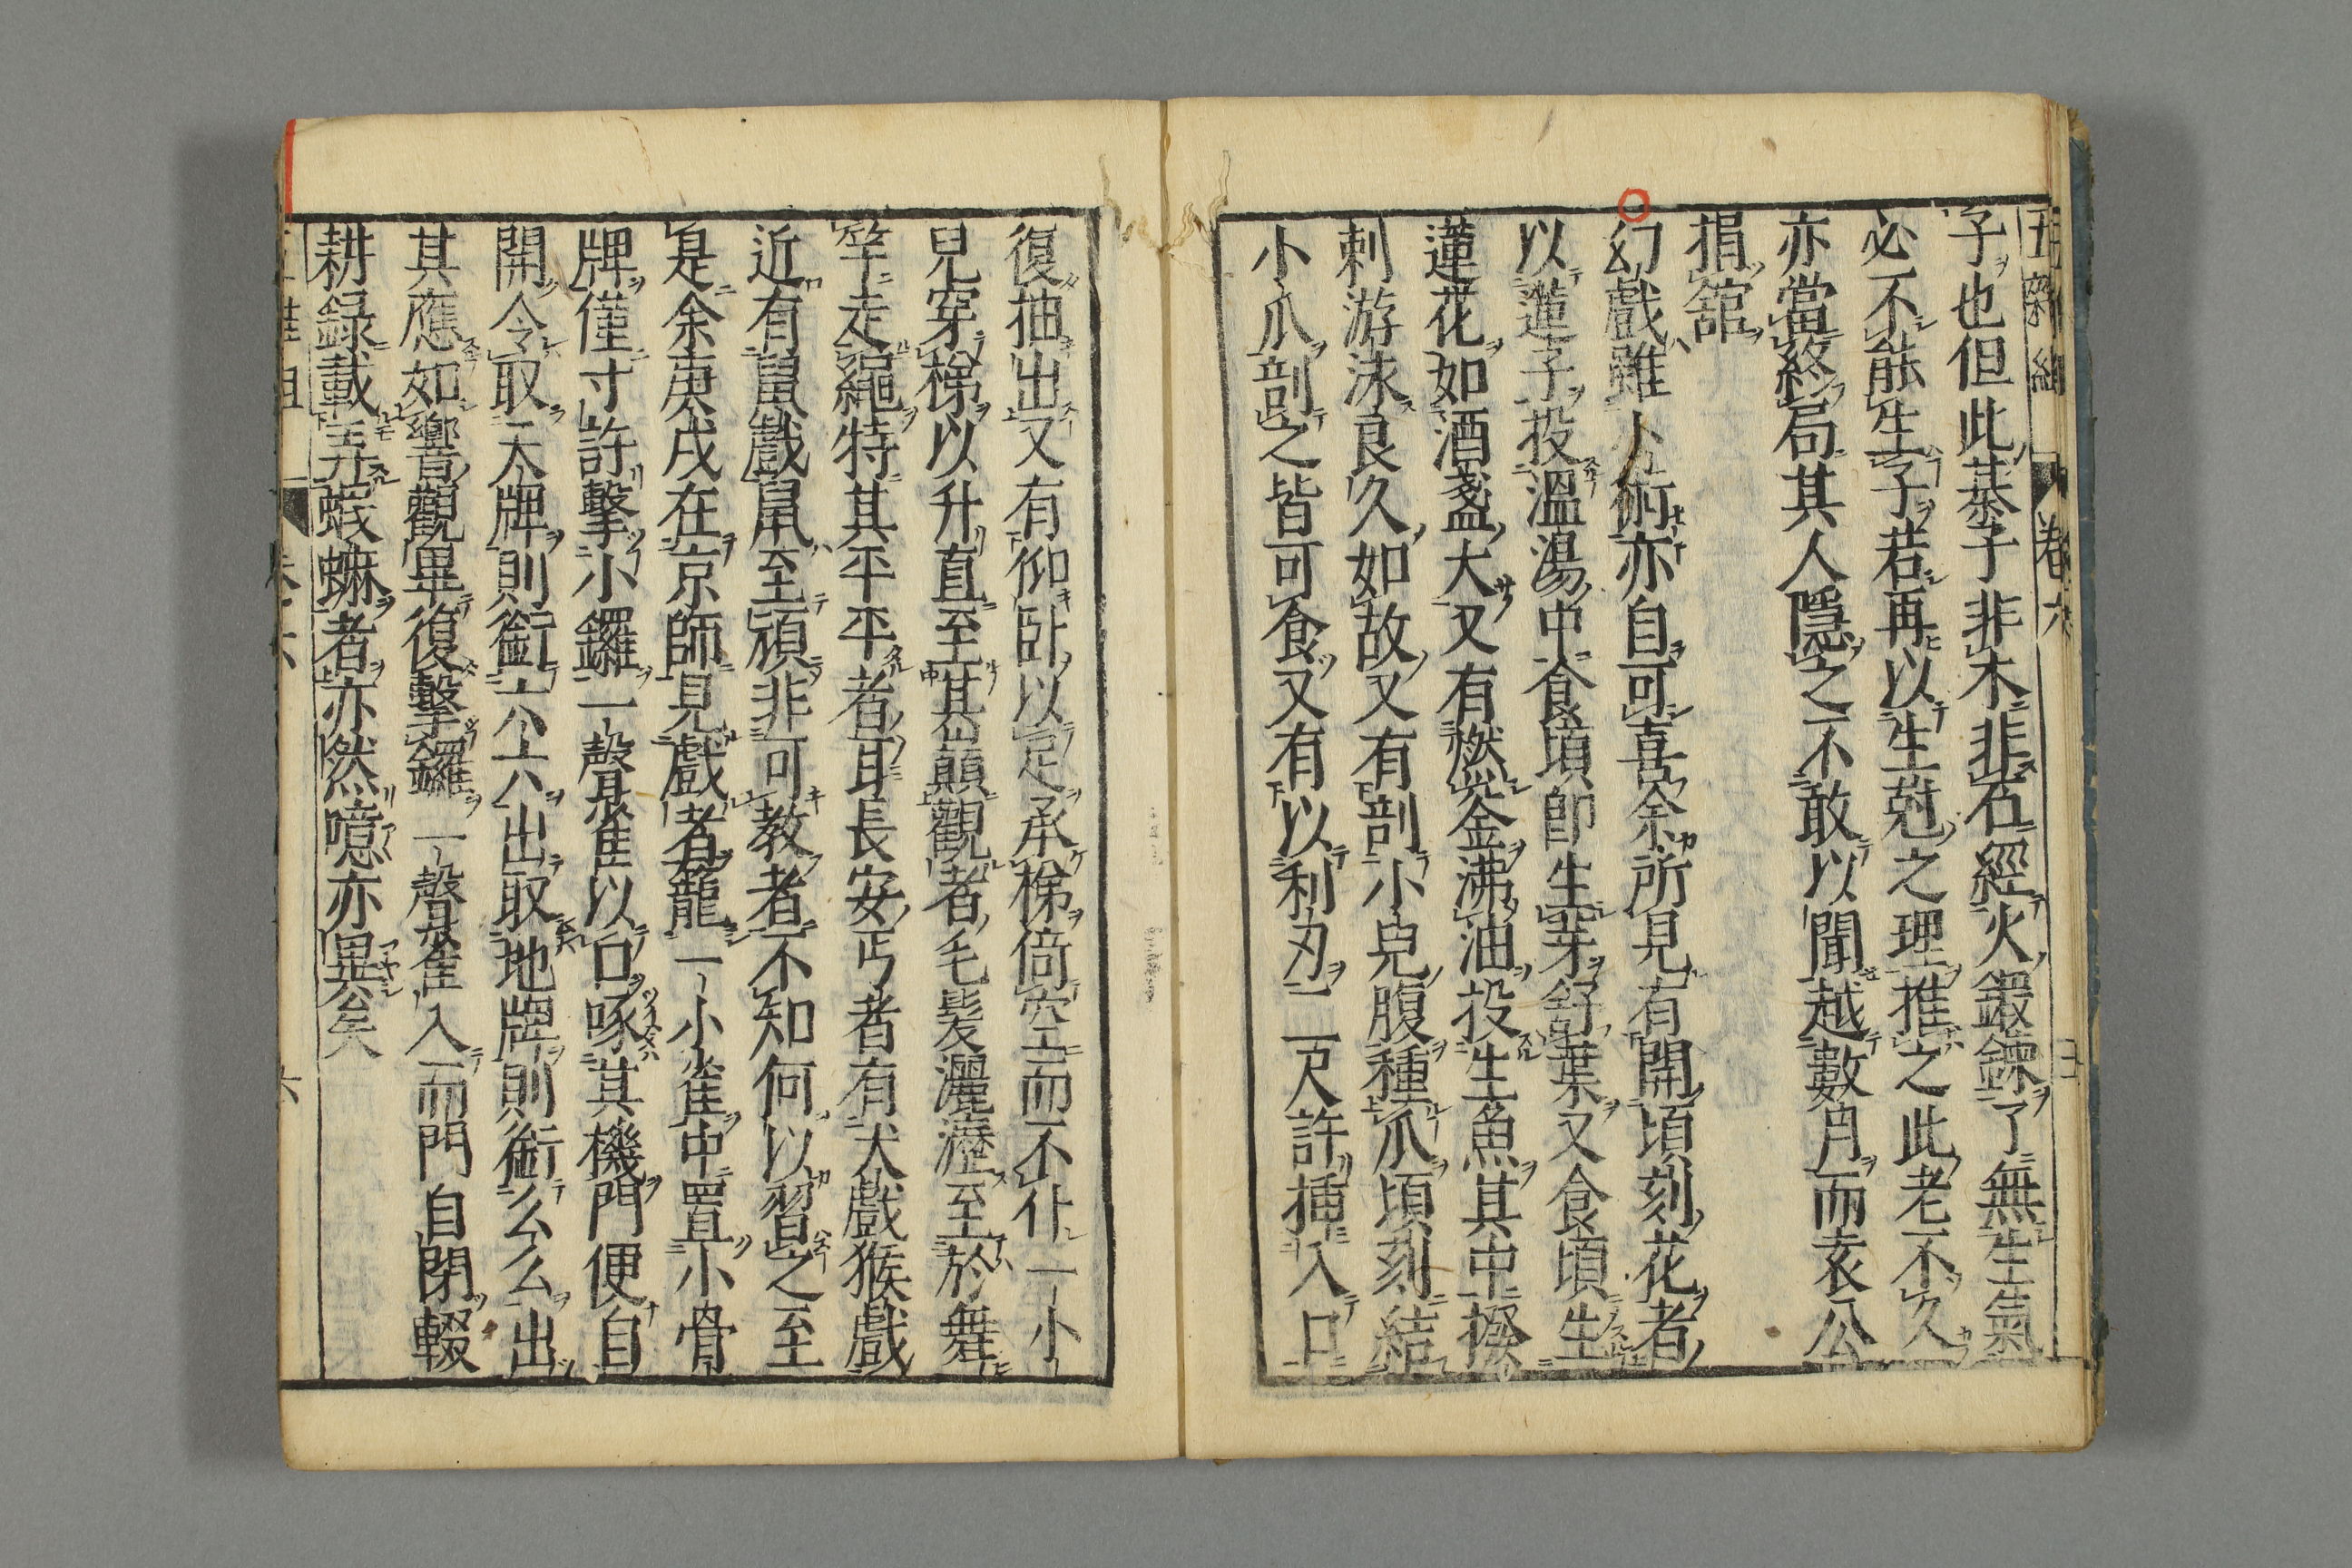 五雜組 卷六
子也但此棊子非木非石經火鍛鍊了無生氣
必不能生子若再以生尅之理推之此老不久
亦當終局其人隱之不敢以聞越數月而袁公
捐舘
幻戲雖小術亦自可喜余所見有開頃刻花者
以蓮子投溫湯中食頃卽生芽舒葉又食頃生
蓮花如酒盞大又有燃釜沸油投生魚其中撥
剌游泳良久如故又有剖小兒腹種爪頃刻結
小爪剖之皆可食又有以利刃二尺許揷入口
復抽出又有仰臥以足承梯倚空而不仆一小
兒穿梯以升直至其巔觀者毛髮灑瀝至於舞
竿走繩特其平平者耳長安丐者有犬戲猴戲
近有鼠戲鼠至頑非可教者不知何以習之至
是余庚戌在京師見戲者籠一小雀中置小骨
牌僅寸許擊小鑼一聲雀以口啄其機門便自
開令取天牌則銜六六出取地牌則銜么么出
其應如響觀畢復擊鑼一聲雀入而門自閉輟
耕錄載弄蝦蟆者亦然噫亦異矣